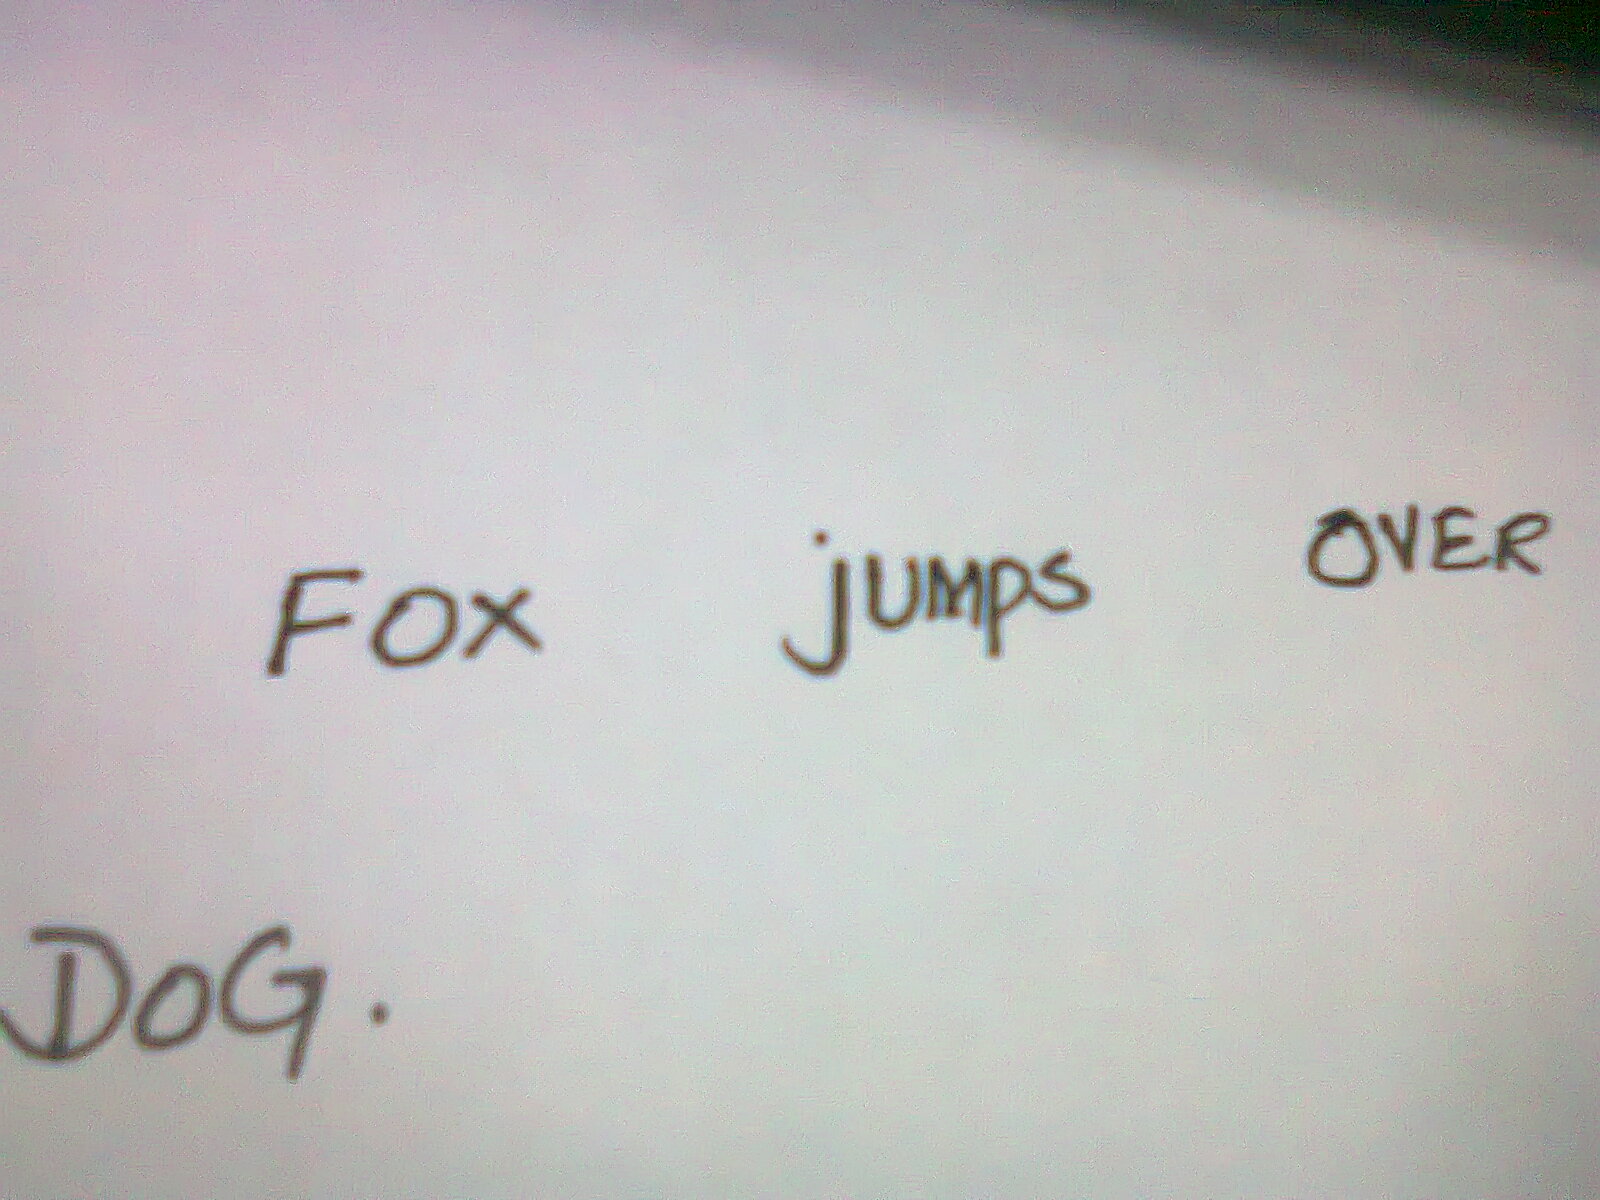 FOX jUMPS OVER
DOG.